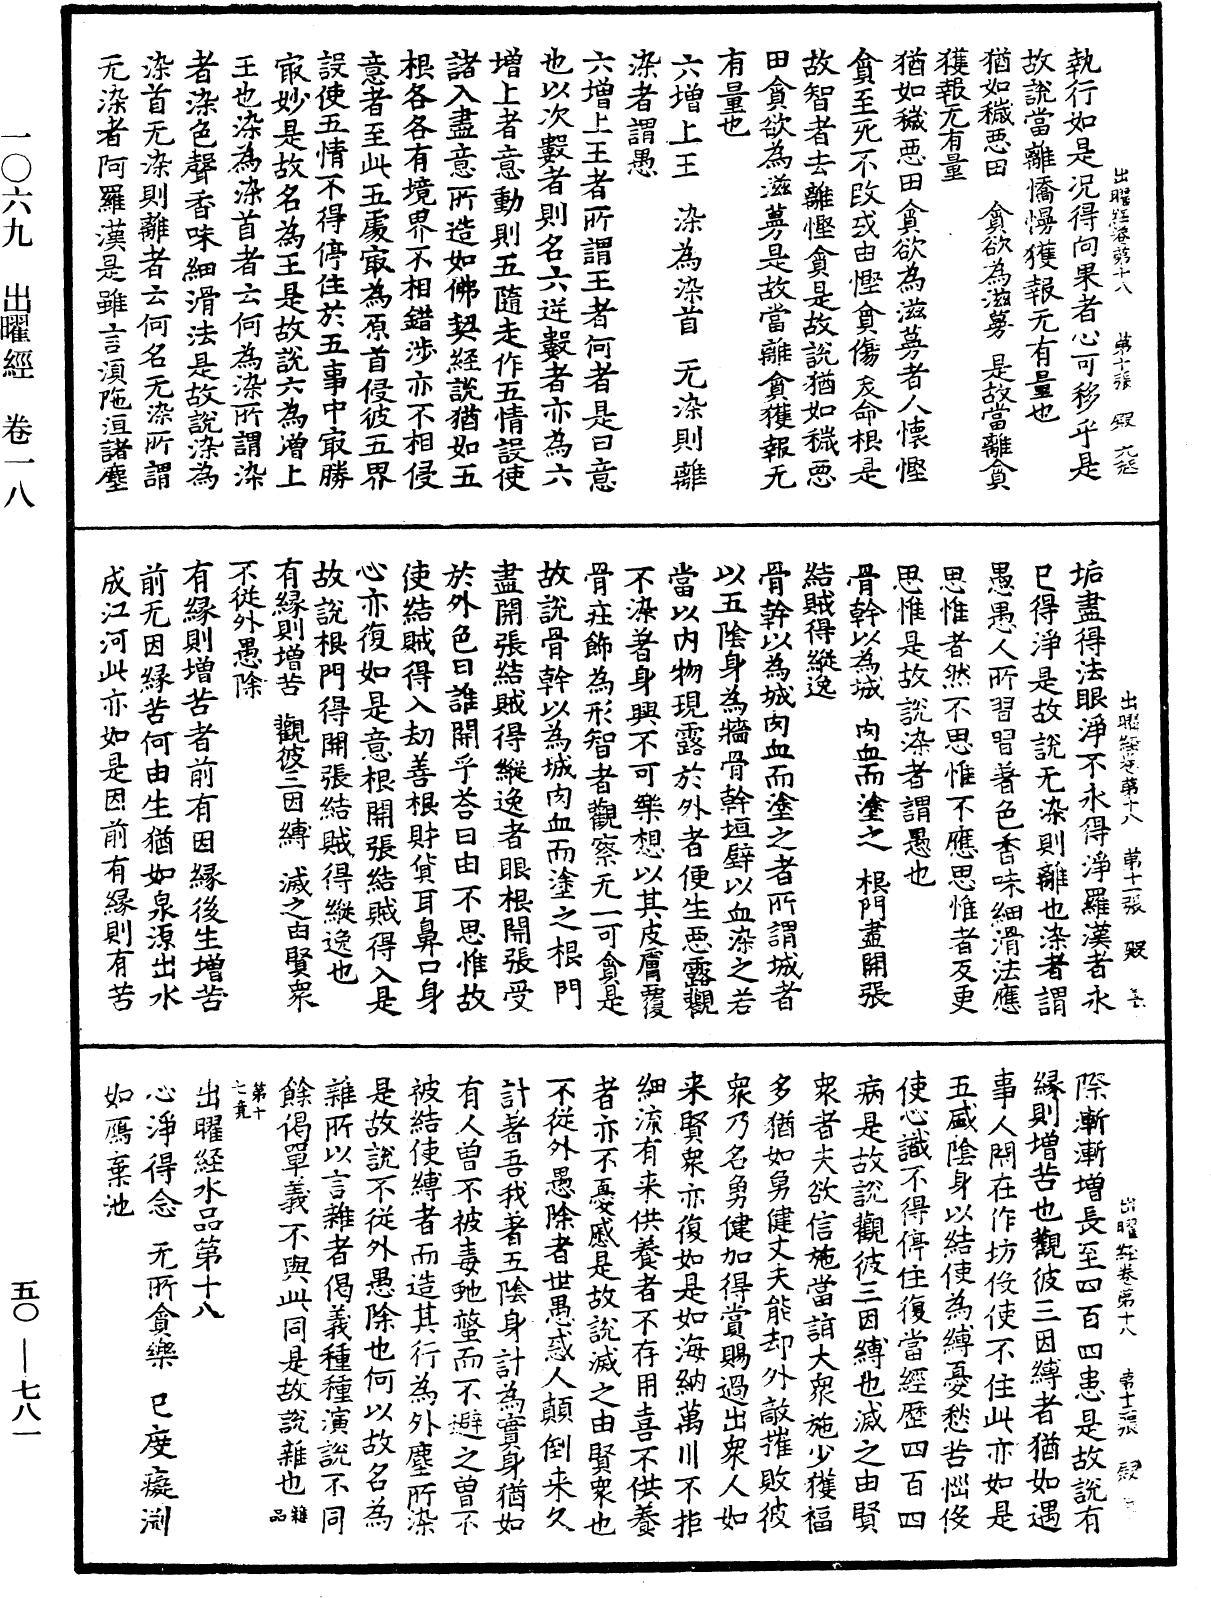 一〇六九　出曜經　卷一八
五〇——七八一
出曜經卷第十八　第十張　殷
執行如是況得向果者心可移乎是
故說當離憍慢獲報无有量也
猶如穢惡田　貪欲為滋蔓　是故當離貪
獲報无有量
猶如穢惡田貪欲為滋蔓者人懷慳
貪至死不改或由慳貪傷友命根是
故智者去離慳貪是故說猶如穢惡
田貪欲為滋蔓是故當離貪獲報无
有量也
六增上王　染為染首　无染則離
染者謂愚
六增上王者所謂王者何者是曰意
也以次數者則名六逆數者亦為六
增上者意動則五隨走作五情設使
諸入盡意所造如佛契經說猶如五
根各各有境界不相錯涉亦不相侵
意者至此五處冣為原首侵彼五界
設使五情不得停住於五事中冣勝
冣妙是故名為王是故說六為增上
王也染為染首者云何為染所謂染
者染色聲香味細滑法是故說染為
染首无染則離者云何名无染所謂
无染者阿羅漢是雖言湏陁洹諸塵
出曜經卷第十八　第十一張　殷
垢盡得法眼淨不永得淨羅漢者永
已得淨是故說无染則離也染者謂
愚愚人所習習著色香味細滑法應
思惟者然不思惟不應思惟者反更
思惟是故說染者謂愚也
骨幹以為城　肉血而塗之　根門盡開張
結賊得縱逸
骨幹以為城肉血而塗之者所謂城者
以五陰身為牆骨幹垣壁以血染之若
當以內物現露於外者便生惡露觀
不染著身興不可樂想以其皮膚覆
骨莊飾為形智者觀察无一可貪是
故說骨幹以為城肉血而塗之根門
盡開張結賊得縱逸者眼根開張受
於外色曰誰開乎荅曰由不思惟故
使結賊得入劫善根財貨耳鼻口身
心亦復如是意根開張結賊得入是
故說根門得開張結賊得縱逸也
有緣則增苦　觀彼三因縛　滅之由賢衆
不從外愚除
有緣則增苦者前有因緣後生增苦
前无因緣苦何由生猶如泉源出水
成江河此亦如是因前有緣則有苦
出曜經卷第十八　第十二張　殷
際漸漸增長至四百四患是故說有
緣則增苦也觀彼三因縛者猶如遇
事人閇在作坊伇使不住此亦如是
五盛陰身以結使為縛憂愁苦惱伇
使心識不得停住復當經歷四百四
病是故說觀彼三因縛也滅之由賢
衆者夫欲信施當詣大衆施少獲福
多猶如勇健丈夫能却外敵摧敗彼
衆乃名勇健加得賞賜過出衆人如
来賢衆亦復如是如海納萬川不拒
細流有来供養者不存用喜不供養
者亦不憂慼是故說滅之由賢衆也
不從外愚除者世愚惑人顛倒来久
計著吾我著五陰身計為實身猶如
有人曾不被毒虵螫而不避之曾不
被結使縛者而造其行為外塵所染
是故說不從外愚除也何以故名為
雜所以言雜者偈義種種演說不同
餘偈單義不與此同是故說雜也　雜品
第十七竟
出曜經水品第十八
心淨得念　无所貪樂　已度癡淵
如鴈棄池